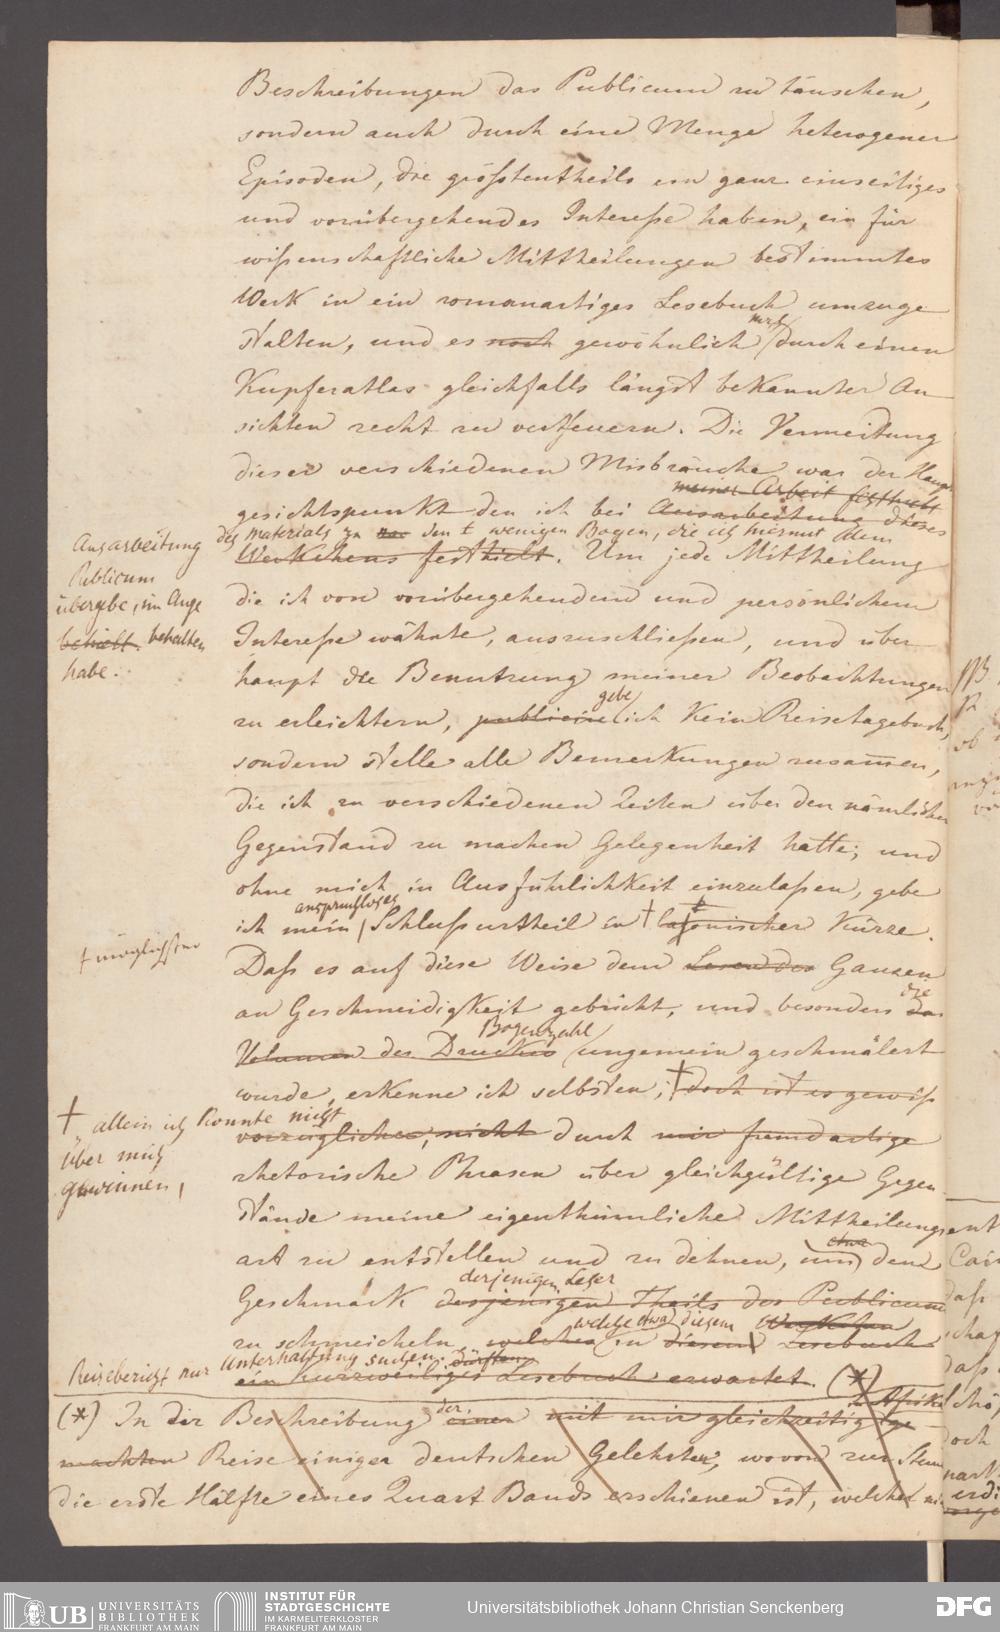 Beschreibungen das Publicum zu täuschen,
sondern auch durch eine Menge heterogener
Episoden, die größtentheils ein ganz einseitiges
und vorübergehendes Interesse haben, ein für
wißenschaftliche Mittheilungen bestimmtes
Werk in ein romanartiges Lesebuch umzuge
stalten, und es noch gewöhnlich durch einen
noch
Kupferatlas gleichfalls längst bekannter An
sichten recht zu vertheuern. Die Vermeidung
dieser verschiedenen Misbräuche war der Haupt
meiner Arbeit festhielt
gesichtspunkt den ich bei Ausarbeitung dieses
des Materials zu den wenigen Bogen, die ich hiermit dem
Ausarbeitung
Publicum
übergebe, im Auge
behielt. behalten
habe.
Werkchens festhielt. Um jede Mittheilung
die ich von vorübergehendem und persönlichem
Interesse wähnte, auszuschließen, und über
haupt die Benutzung meiner Beobachtungen
gebe
zu erleichtern, publicire ich kein Reisetagebuch,
sondern stelle alle Bemerkungen zusammen,
die ich zu verschiedenen Zeiten über den nämlichen
Gegenstand zu machen Gelegenheit hatte; und
ohne mich in Ausführlichkeit einzulaßen, gebe
anspruchloses
ich mein Schlußurtheil in † laconischer Kürze.
† möglichster
Daß es auf diese Weise dem Lesen des Ganzen
an Geschmeidigkeit gebricht, und besonders das
die
Bogenzahl
Volumen des Druckes ungemein geschmälert
wurde, erkenne ich selbsten; † doch ist es gewiß
† allein ich konnte nicht
über mich
gewinnen,
vorzüglicher, nicht durch mir fremdartige
rhetorische Phrasen über gleichgültige Gegen
stände meine eigenthümliche Mittheilungs
art zu entstellen und zu dehnen, um dem
etwa
derjenigen Leser
Geschmack desjenigen Theils des Publicum
welche etwa diesem Werkchen
zu schmeicheln welches in diesem Lesebuch
Reisebericht nur Unterhaltung suchen dürften
ein kurzweiliges Lesebuch erwartet. (*)
in Afrika
(*) In der Beschreibung einer mit mir gleichzeitig ge
der
machten Reise einiger deutschen Gelehrten, wovon zur Stunde
die erste Hälfte eines Quart Bands erschienen ist, welcher